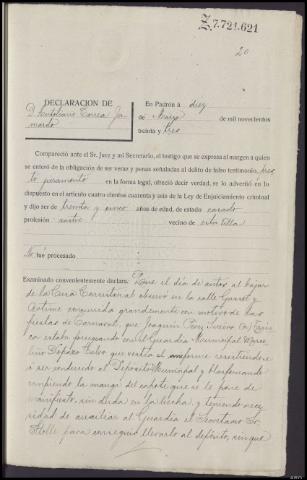 Z 7.721.621
20
DECLARACION DE
D. Camarea Ja-
mardo
En Padrón a diez
de Marzo de mil novecientos
treinta y tres
Compareció ante el Sr. Juez y mi Secretario, el testigo que se expresa al margen a quien
se enteró de la obligación de ser veraz y penas señaladas al delito de falso testimonio, pres
tó juramento en la forma legal, ofreció decir verdad, se lo advertió en lo
dispuesto en el artículo cuatro cientos cuarenta y seis de la Ley de Enjuiciamiento criminal
y dijo ser de treinta y cinco años de edad, de estado casado
profesión sastre vecino de esta Villa
No ha procesado
Examinado convenientemente declara: Que el día de autos al bajar
de la Casa Consistorial al observó en la calle Gunel y
fiestas de Carnaval, que Joaquín
estaba pegando en el Guardia Municipal
Calvo que vestía el uniforme resistiendose
a ser conducido al Depósito Municipal y
rompiendo la manga del capote que se le pone de
manifiesto, sin duda en la lucha y teniendo nece
sidad de auxiliar al Guardia el Secretario Sr
para conseguir llevarlo al depósito, aunque